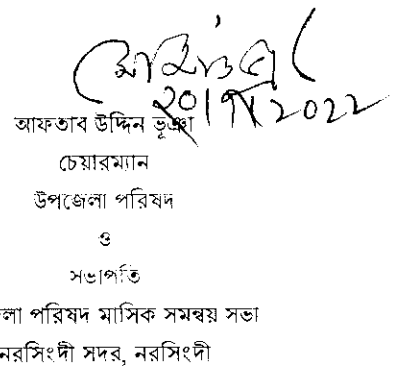 আফতাব উদ্দিন ভূঞা
চেয়ারম্যান
উপজেলা পরিষদ
ও
সভাপতি
লা পরিষদ মাসিক সমন্বয় সভা
নরসিংদী সদর, নরসিংদী